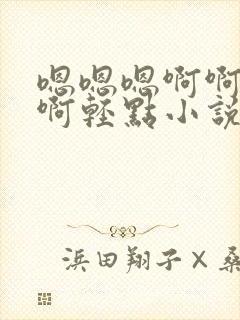 嗯嗯嗯啊啊
啊輕點小説
浜田翔子×桑